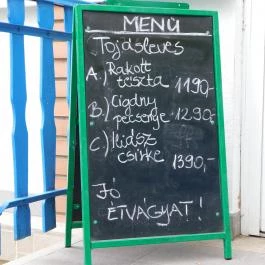 MENÜ
Tojásleves
A.) Rakott
tészta 1190,-
B.) Cigány
pecsenye 1290,-
C.) Kidsz
csirke 1390,-
Jó
ÉTVÁGYAT!